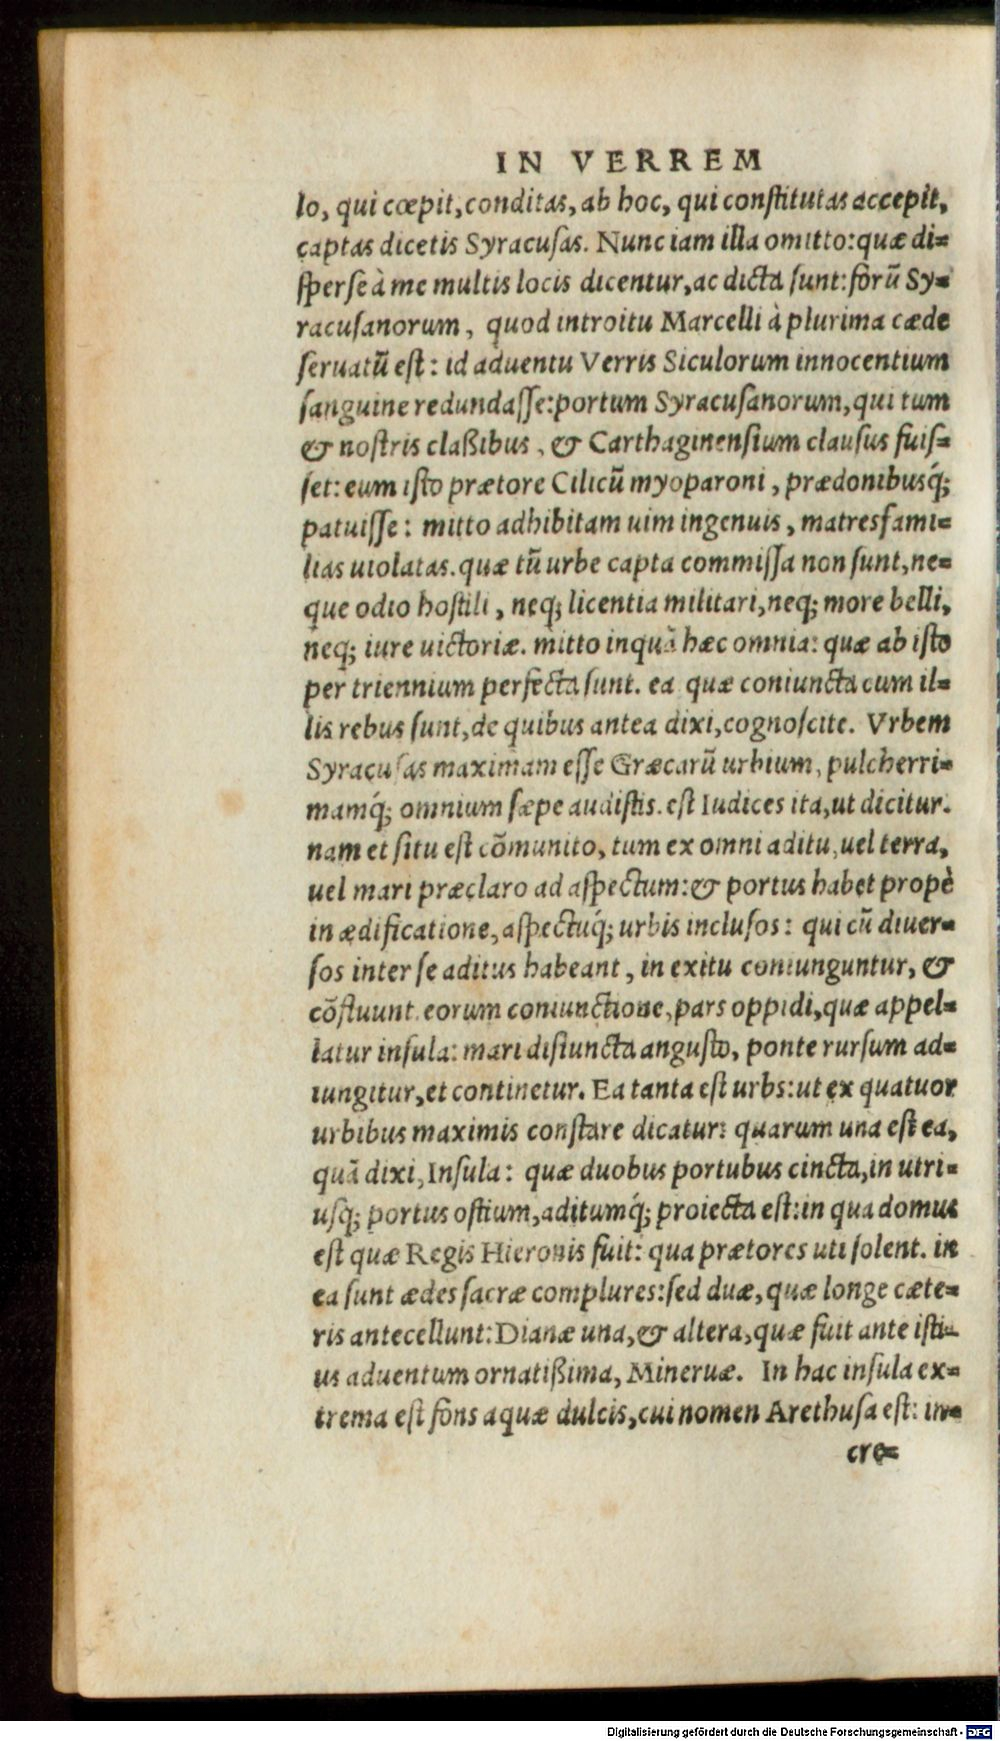 IN VERREM
lo, qui cœpit, conditas, ab hoc, qui constitutas accepit,
captas dicetis Syracusas. Nunc iam illa omitto: quæ di=
sperse à me multis locis dicentur, ac dicta sunt: forũ Sy=
racusanorum, quod introitu Marcelli à plurima cæde
seruatũ est: id aduentu Verris Siculorum innocentium
sanguine redundasse: portum Syracusanorum, qui tum
& nostris claßibus, & Carthaginensium clausus fuis=
set: eum isto prætore Cilicũ myoparoni, prædonibusq́;
patuisse: mitto adhibitam uim ingenuis, matresfami=
lias uiolatas. quæ tũ urbe capta commissa non sunt, ne=
que odio hostili, neq; licentia militari, neq; more belli,
neq; iure uictoriæ. mitto inquã hæc omnia: quæ ab isto
per triennium perfecta sunt. ea quæ coniuncta cum il=
lis rebus sunt, de quibus antea dixi, cognoscite. Vrbem
Syracusas maximam esse Græcarũ urbium, pulcherri=
mamq́; omnium sæpe audistis. est Iudices ita, ut dicitur.
nam et situ est cõmunito, tum ex omni aditu, uel terra,
uel mari præclaro ad aspectum: & portus habet propè
in ædificatione, aspectuq́; urbis inclusos: qui cũ diuer=
sos inter se aditus habeant, in exitu coniunguntur, &
cõfluunt. eorum coniunctione, pars oppidi, quæ appel=
latur insula: mari disiuncta angusto, ponte rursum ad=
iungitur, et continetur. Ea tanta est urbs: ut ex quatuor
urbibus maximis constare dicatur: quarum una est ea,
quã dixi, Insula: quæ duobus portubus cincta, in utri=
usq; portus ostium, aditumq́; proiecta est: in qua domus
est quæ Regis Hieronis fuit: qua prætores uti solent. in
ea sunt ædes sacræ complures: sed duæ, quæ longe cæte=
ris antecellunt: Dianæ una, & altera, quæ fuit ante isti=
us aduentum ornatißima, Mineruæ. In hac insula ex=
trema est fons aquæ dulcis, cui nomen Arethusa est: in=
cre=
Digitalisierung gefördert durch die Deutsche Forschungsgemeinschaft - DFG